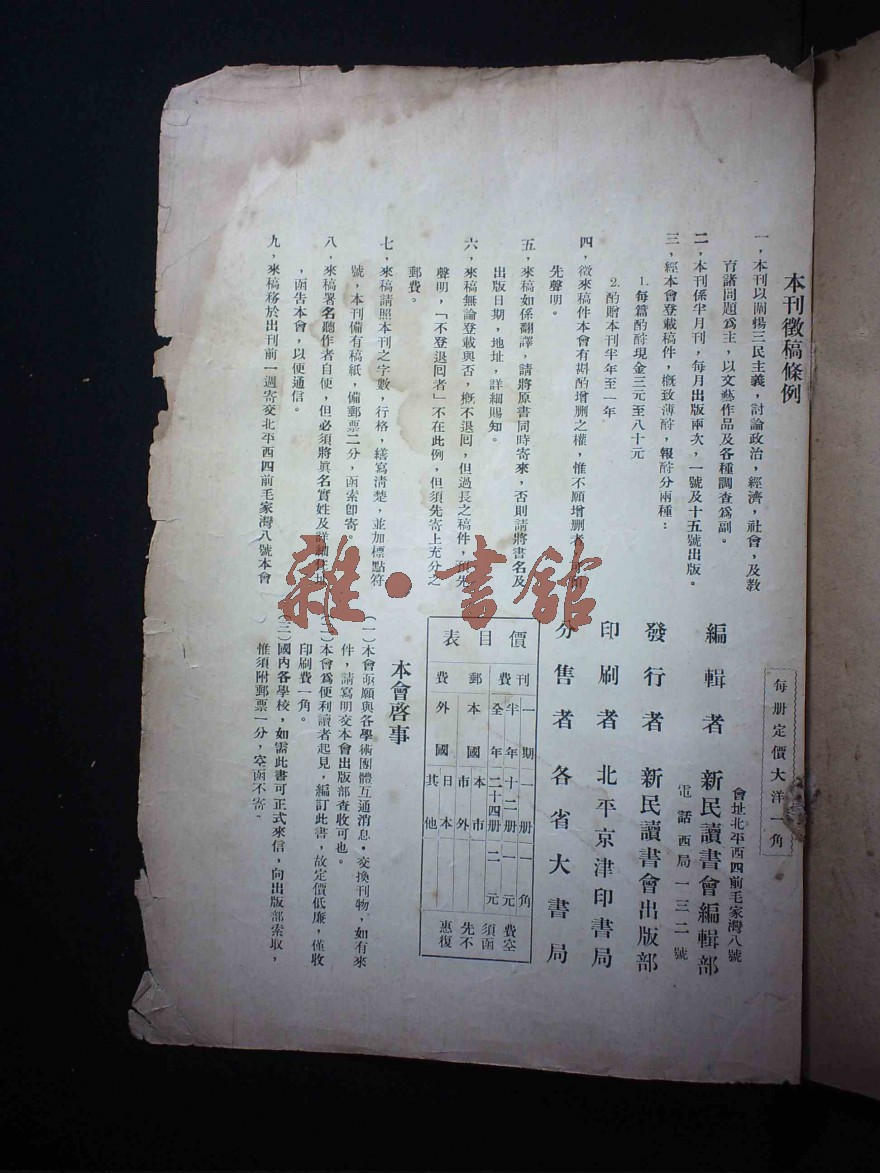 本刊徵稿條例
一，本刊以闡揚三民主義，討論政治，經濟，社會，及教
育諸問題爲主，以文藝作品及各種調查爲副。
二，本刊係半月刊，每月出版兩次，一號及十五號出版。
三，經本會登載稿件，概致薄酧，報酧分兩種：
1.每篇酌酧現金三元至八十元
2.酌贈本刊半年至一年
四，徵來稿件本會有斟酌增删之權，惟不願增删者
先聲明。
五，來稿如係翻譯，請將原書同時寄來，否則請將書名及
出版日期，地址，詳細賜知。
六，來稿無論登載與否，概不退回，但過長之稿件，先
聲明，「不登退回者」不在此例，但須先寄上充分之
郵費。
七，來稿請照本刊之字數，行格，繕寫清楚，並加標點符
號，本刊備有稿紙，備郵票二分，函索卽寄。
八，來稿署名聽作者自便，但必須將眞名實姓及詳細住址
，函告本會，以便通信。
九，來稿務於出刊前一週寄交北平西四前毛家灣八號本會
每册定價大洋一角
會址北平西四前毛家灣八號
編輯者 新民讀書會編輯部
電話西局一三二號
發行者 新民讀書會出版部
印刷者 北平京津印書局
分售者 各省大書局
價目表
刊費
一期一册一角
半年十二册一元
全年二十四册二元
郵費
本國
本市
市外
外國
日本
其他
費空
須函
先不
惠復
本會啓事
(一)本會亟願與各學術團體互通消息，交換刊物，如有來
件，請寫明交本會出版部查收可也。
(二)本會爲便利讀者起見，編訂此書，故定價低廉，僅收
印刷費一角。
(三)國內各學校，如需此書可正式來信，向出版部索取，
惟須附郵票一分，空函不寄。
雜·書館